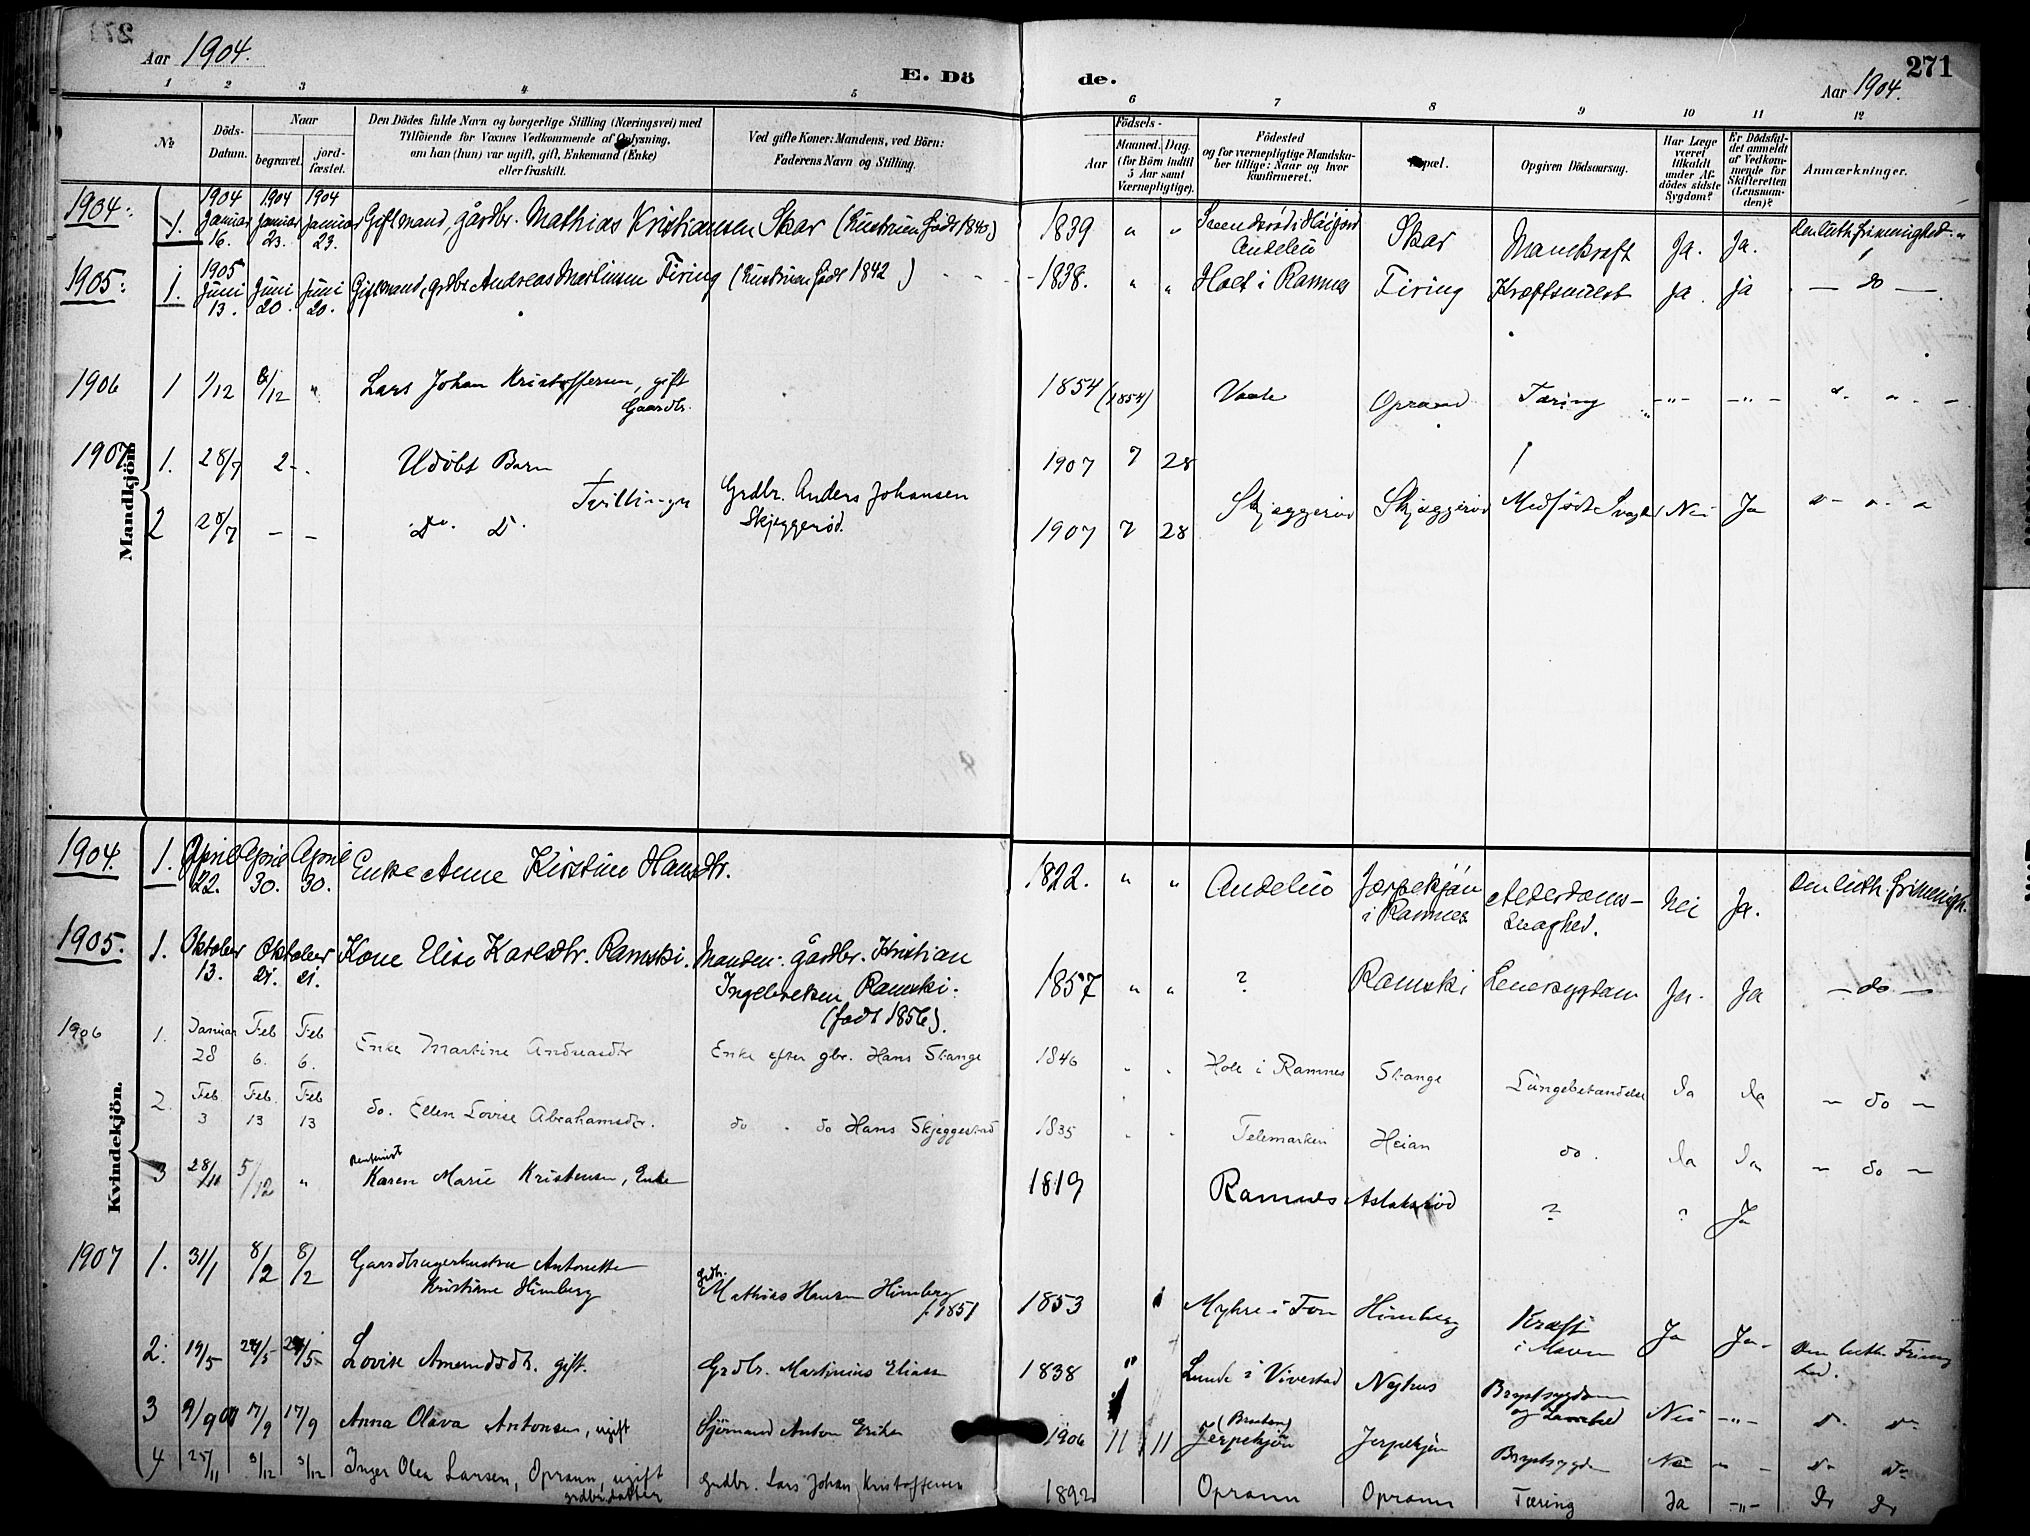 Aar 1904.
E. Dö
de.
271
Aar 1904.
1 2 3 4 5 6 7 8 9 10 11 12
№
Döds-Datum.
Naar
begravet.
jord-fæstet.
Den Dödes fulde Navn og borgerlige Stilling (Næringsvei) med
Tilföiende for Voxnes Vedkommende af Oplysning,
om han (hun) var ugift, gift, Enkemand (Enke)
eller fraskilt.
Ved gifte Koner: Mandens, ved Börn:
Faderens Navn og Stilling.
Födsels-
Aar
Maaned. Dag.
(for Börn indtil
5 Aar samt
Værnepligtige).
Födested
og for værnepligtige Mandska-
ber tillige: Naar og hvor
konfirmeret.
Bopæl.
Opgiven Dödsaarsag.
Har Læge
været
tilkaldt
under Af-
dödes sidste
Sygdom?
Er Dödsfal-
det anmeldt
af Vedkom-
mende for
Skifteretten
(Lensman-
den)?
Anmærkninger.
Mandkjön.
1904: 1. 1904 Januar 16. 1904 Januar 23. 1904 Januar 23. Giftmand, gårdbr. Mathias Kristiansen Skar (hustruen född 1840) 1839 " " Andebu Skar Mavekræft Ja. Ja. Den luth. frimenighed.
1905: 1. 1905 Juni 13. Juni 20. Juni 20. Giftmand, grdbr. Andreas Martinsen Firing (hustruen född 1842) 1838. " " Holt i Ramnes Firing Kræftsvulst Ja. Ja — do —
1906 1 1/12 8/12 " Lars Johan Kristoffersen, gift
Gaardbr.
1854 (1854) Vaale Opraund Tæring
1907 1. 28/7 2 - Udöbt Barn 1907 7 28
Tvillinger Grdbr. Anders Johansen
Skjeggeröd. Skjeggeröd Skjeggeröd Medfödt Svagh. Nei Ja
2 28/7 — — Do. D. 1907 7 28
Kvindekjön.
1904. 1. April 22. April 30. April 30. Enke Anne Kirstine Hansdtr. 1822. " " Andebu Jærpekjön
i Ramnes Alderdoms-
svaghed. Nei Ja. Den luth. frimenigh.
1905. 1. Oktober 13. Oktober 21. 21. Kone Elise Karlsdtr. Ramski. Manden: gårdbr. Kristian
Ingebretsen Ramski.
(födt 1856). 1857 " " ? Ramski Leversygdom Ja. Ja — do —
1906 1. Januar 28 Feb 6. Feb 6. Enke Martine Andreasdtr Enke efter gbr. Hans Stange 1846 Holt i Ramnes Stange Lungebetændelse Ja Ja — do —
2. Feb. 3 Feb. 13 Feb 13 do. Ellen Lovise Abrahamsdtr. do " do Hans Skjeggestad 1835 Telemarken Heian do. Ja Ja — do —
3 28/11 5/12 " Karen Marie Kristensen, Enke 1819 Ramnes Aslaksröd ? ? Ja
1907 1. 31/1 8/2 8/2 Gaardbrugerhustru Antonette
Kristiane Himberg Grdbr. Mathias Hansen Himberg
f. 1851 1853 Myhre i Fon Himberg Kræft
i Maven Ja Ja
2. 19/5 24/5 24/5 Lovise Amundsdtr. gift. Grdbr. Martinius Eliass 1838 " Lunde i Vivestad Nyhus Brystsygdom Nei -"- Den luth. Frimenighed.
3 9/9 07 17/9 17/9 Anna Olava Antonsen, ugift Sjömand Anton Eriksen 1906 11 11 (Braaten)
Jerpekjön Jerpekjön Brystsygdom Nei " Do Do
4 25/11 3/12 3/12 Inger Olea Larsen, Opraun, ugift
grdbr.datter Grdbr. Lars Johan Kristoffersen 1892 Opraun Opraun Tæring Ja -"- Do Do